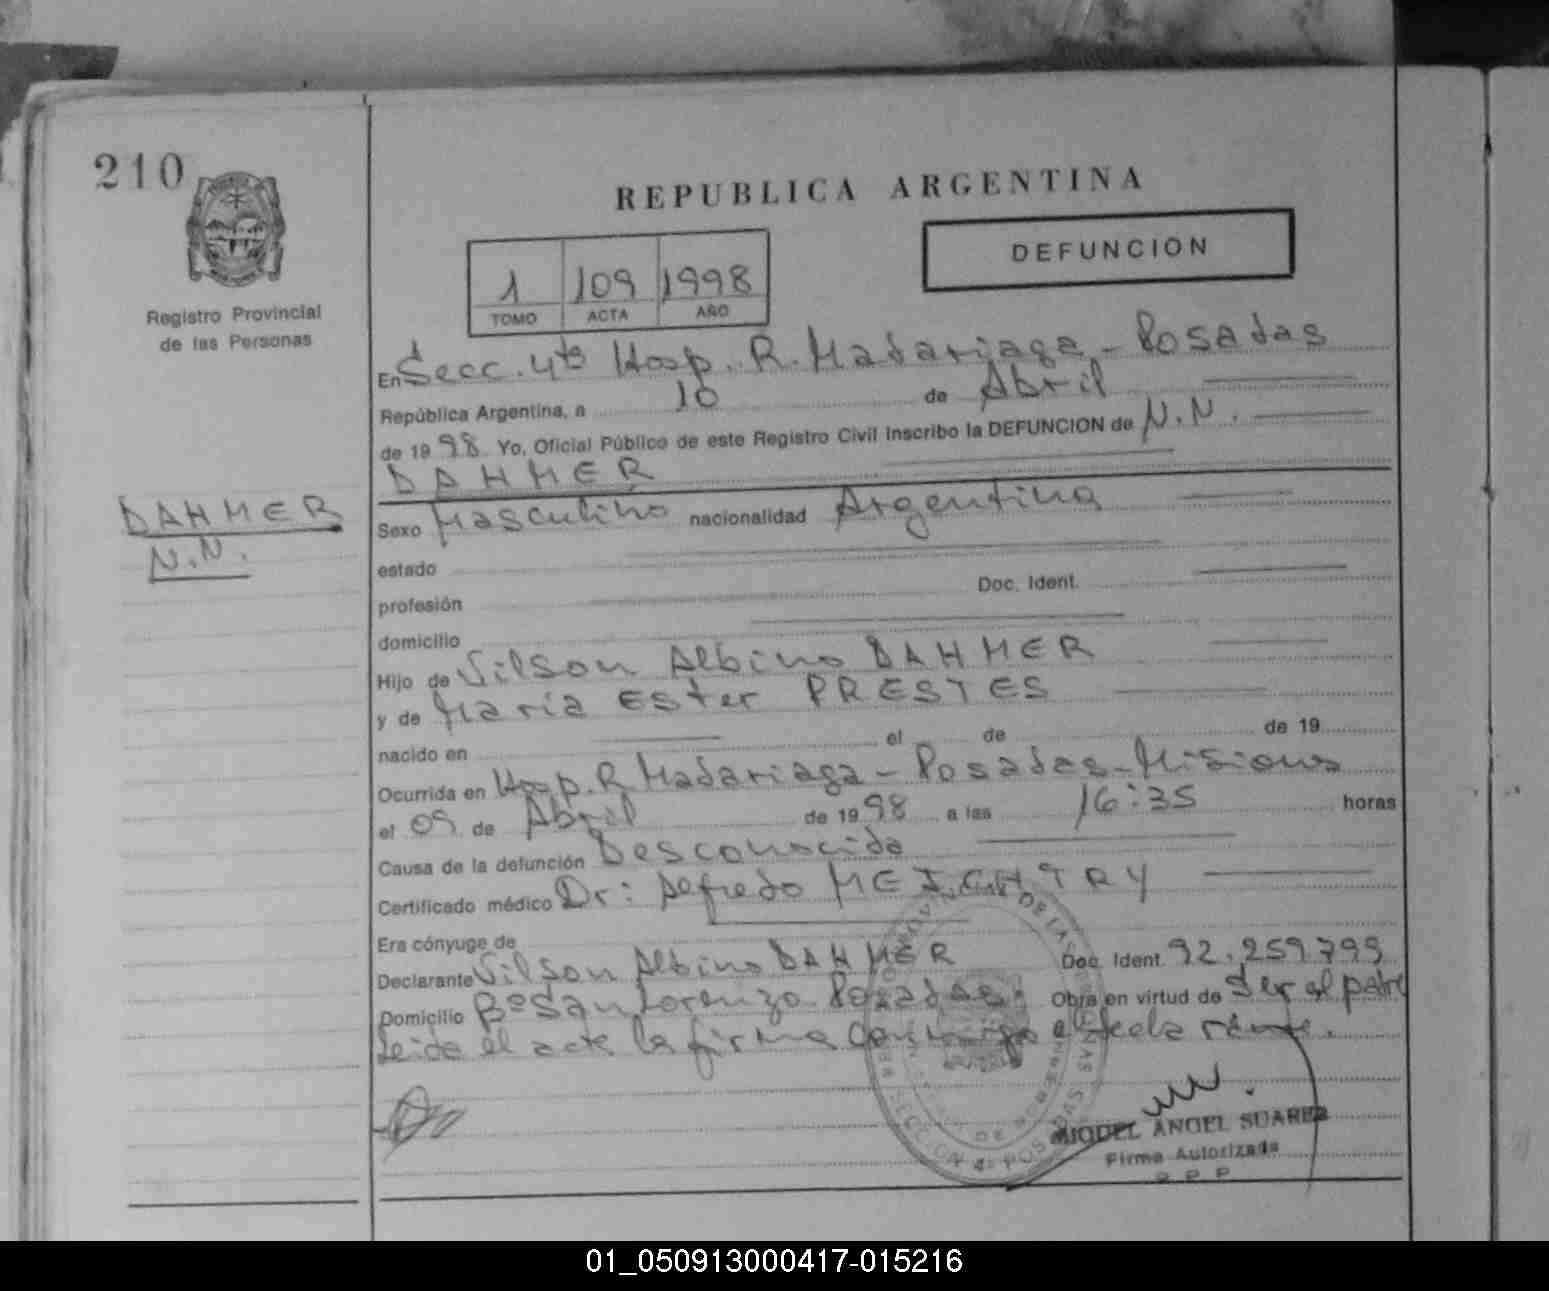 210
REPUBLICA ARGENTINA
DEFUNCION
1 109 1998
TOMO ACTA AÑO
Registro Provincial
de las Personas
En Secc. 4ta Hosp. R. Madariaga - Posadas
República Argentina, a 10 de Abril
de 1998 Yo, Oficial Público de este Registro Civil Inscribo la DEFUNCION de N.N.
DAHMER
DAHMER
N.N.
Sexo Masculino nacionalidad Argentina
estado
profesión Doc. Ident.
domicilio
Hijo de Vilson Albino DAHMER
y de María Ester PRESTES
nacido en el de de 19
Ocurrida en Hosp. R Madariaga - Posadas - Misiones
el 09 de Abril de 1998 a las 16:35 horas
Causa de la defunción Desconocida
Certificado médico Dr: Alfredo
Era cónyuge de
Declarante Vilson Albino DAHMER Doc. Ident. 92.259.799
Domicilio Bº San Lorenzo Posadas. Obra en virtud de Ser el padre
Leida el acta la firma conmigo el declarante.
SECCION 4ª POSADAS
MIGUEL ANGEL SUAREZ
Firma Autorizada
R P P
01_050913000417-015216